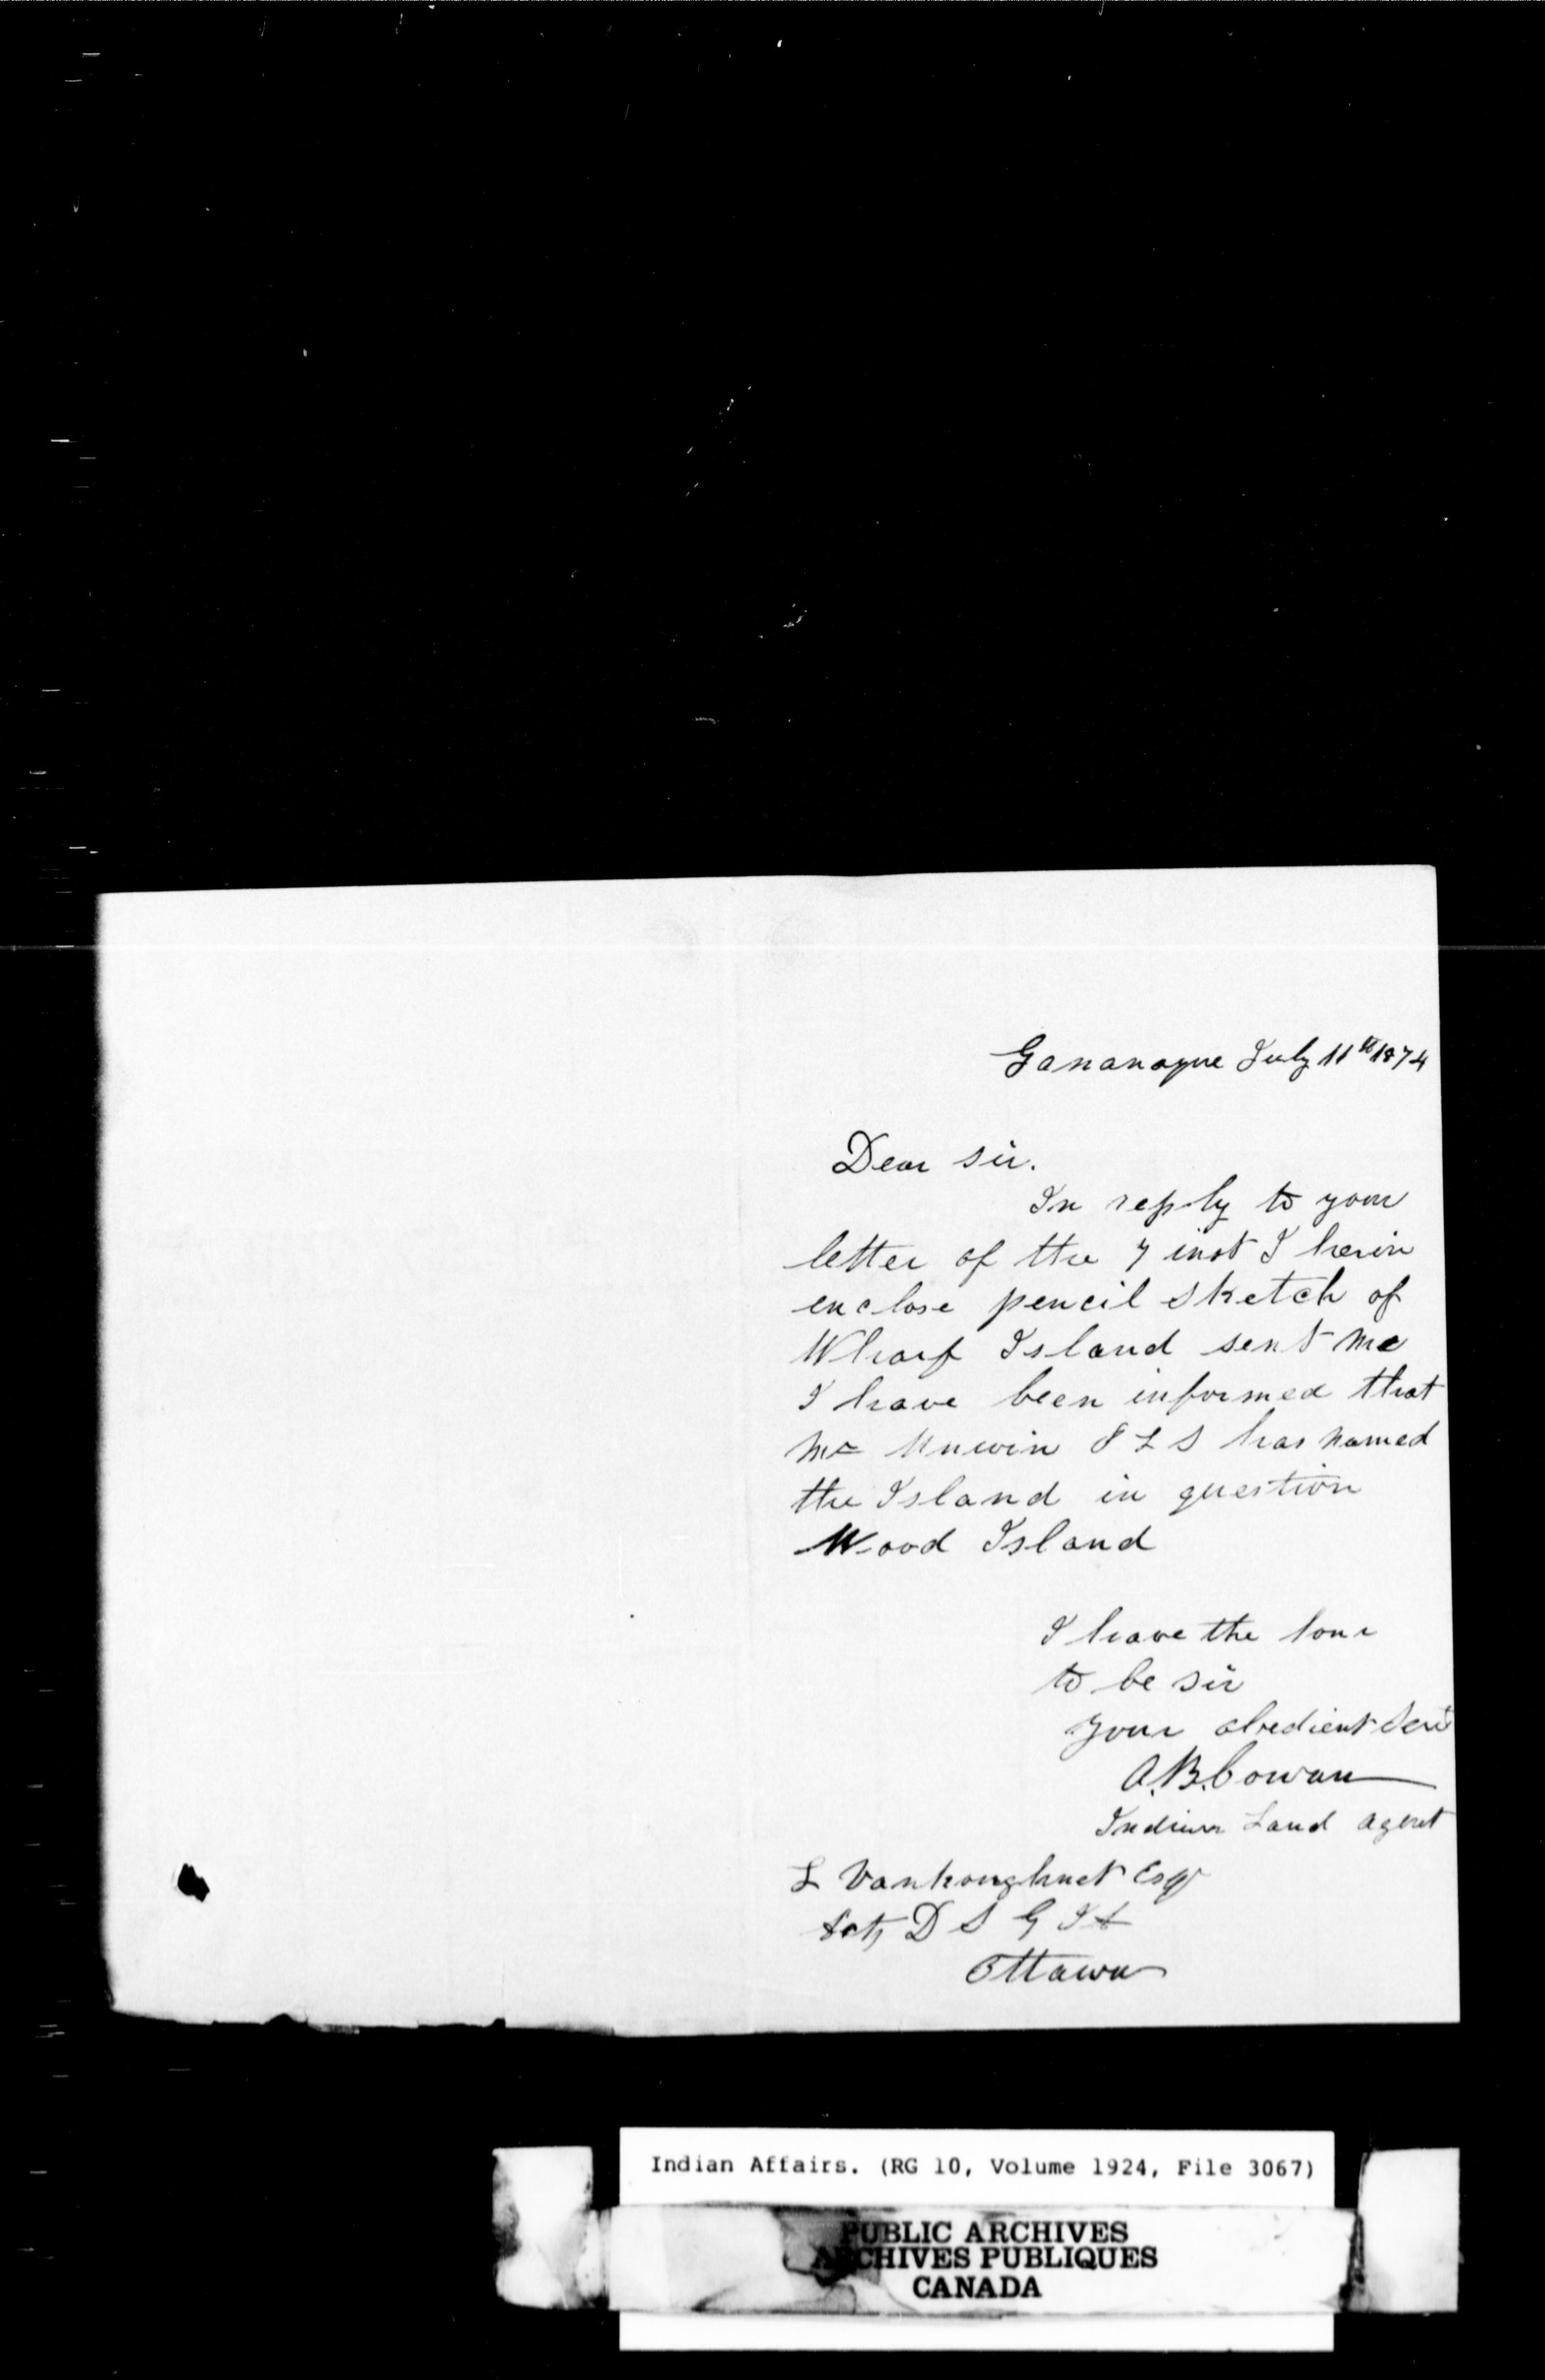 Gananoque July 11th 1874
Dear sir.
In reply to your
letter of the 7 inst I herin
enclose pencil sketch of
Wharf Island sent me
I have been informed that
Mr Unwin P L S has named
the Island in question
Wood Island
I have the honr
to be sir
your obedient Servt
A.B. Cowan
Indian Land Agent
L Vankoughnet Esqr
D S G I A
Ottawa
Indian Affairs. (RG 10, Volume 1924, File 3067)
PUBLIC ARCHIVES
ARCHIVES PUBLIQUES
CANADA